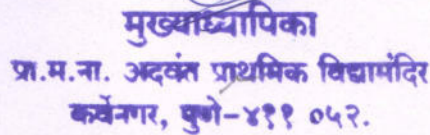 मुख्याध्यापिका
प्रा.म.ना. अदवंत प्राथमिक विद्यामंदिर
कर्वेनगर, पुणे-४११ ०५२.